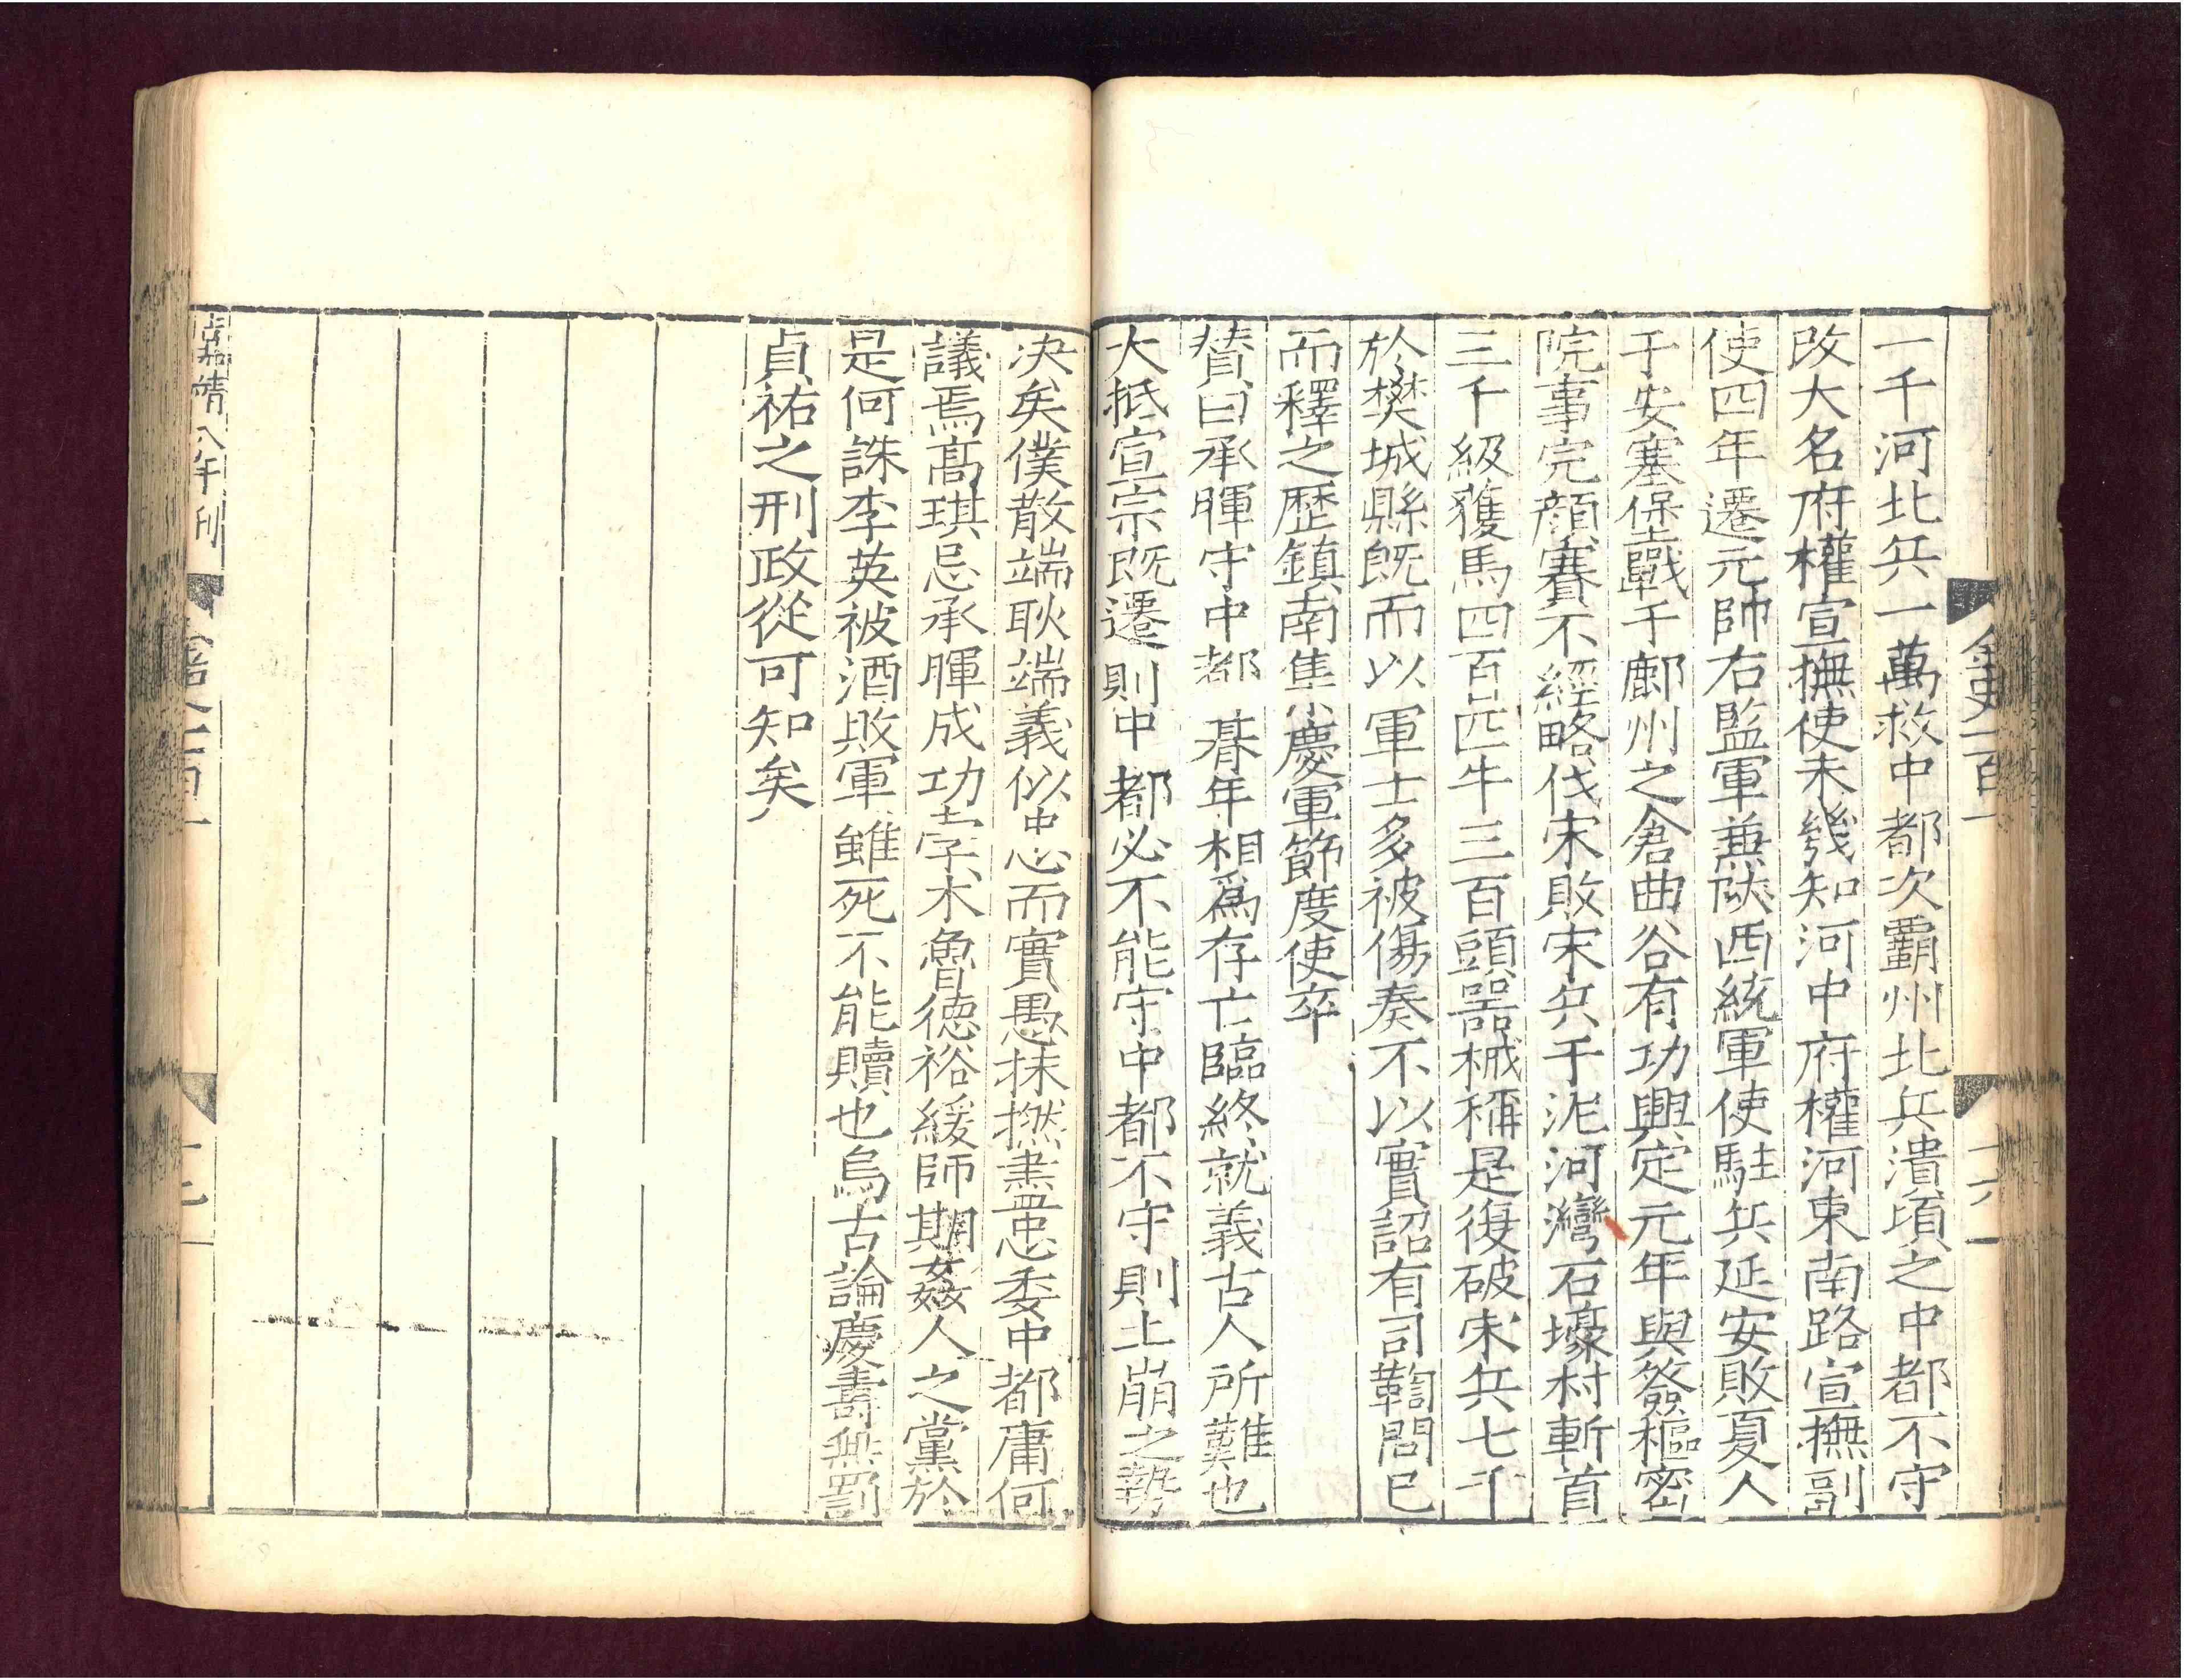 金史一百一
十六
一千河北兵一萬救中都次霸州北兵潰頃之中都不守
改大名府權宣撫使未幾知河中府權河東南路宣撫副
使四年遷元帥右監軍兼陝西統軍使駐兵延安敗夏人
于安塞堡戰于鄜州之倉曲谷有功興定元年與簽樞密
院事完顏賽不經略伐宋敗宋兵于泥河灣石壕村斬首
三千級獲馬四百匹牛三百頭器械稱是復破宋兵七千
於樊城縣既而以軍士多被傷奏不以實詔有司鞫問已
而釋之歷鎮南集慶軍節度使卒
賛曰承暉守中都朞年相爲存亡臨終就義古人所難也
大抵宣宗既遷則中都必不能守中都不守則土崩之勢
决矣僕散端耿端義似忠而實愚抹撚盡忠委中都庸何
議焉高琪忌承暉成功孛术魯德裕緩師期姦人之黨於
是何誅李英被酒敗軍雖死不能贖也烏古論慶壽無罰
貞祐之刑政從可知矣
嘉靖八年刊